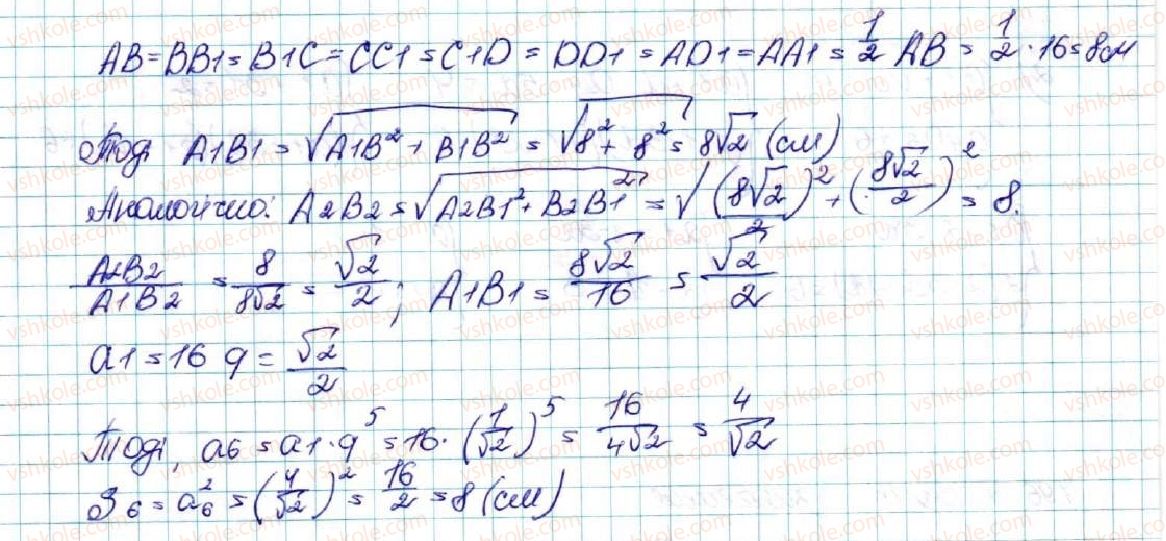 AB = BB1 = B1C = CC1 = C1D = DD1 = AD1 = AA1 = 1/2 AB = 1/2 · 16 = 8см
Тоді A1B1 = √(A1B² + B1B²) = √(8² + 8²) = 8√2 (см)
Аналогічно: A2B2 = √(A2B1² + B2B1²) = √((8√2/2)² + (8√2/2)²) = 8.
A2B2/A1B2 = 8/8√2 = √2/2; A1B1 = 8√2/16 = √2/2
a1 = 16 q = √2/2
Тоді, a6 = a1 · q⁵ = 16 · (1/√2)⁵ = 16/4√2 = 4/√2
S6 = a6² = (4/√2)² = 16/2 = 8 (см)